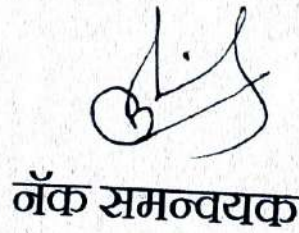 नॅक समन्वयक